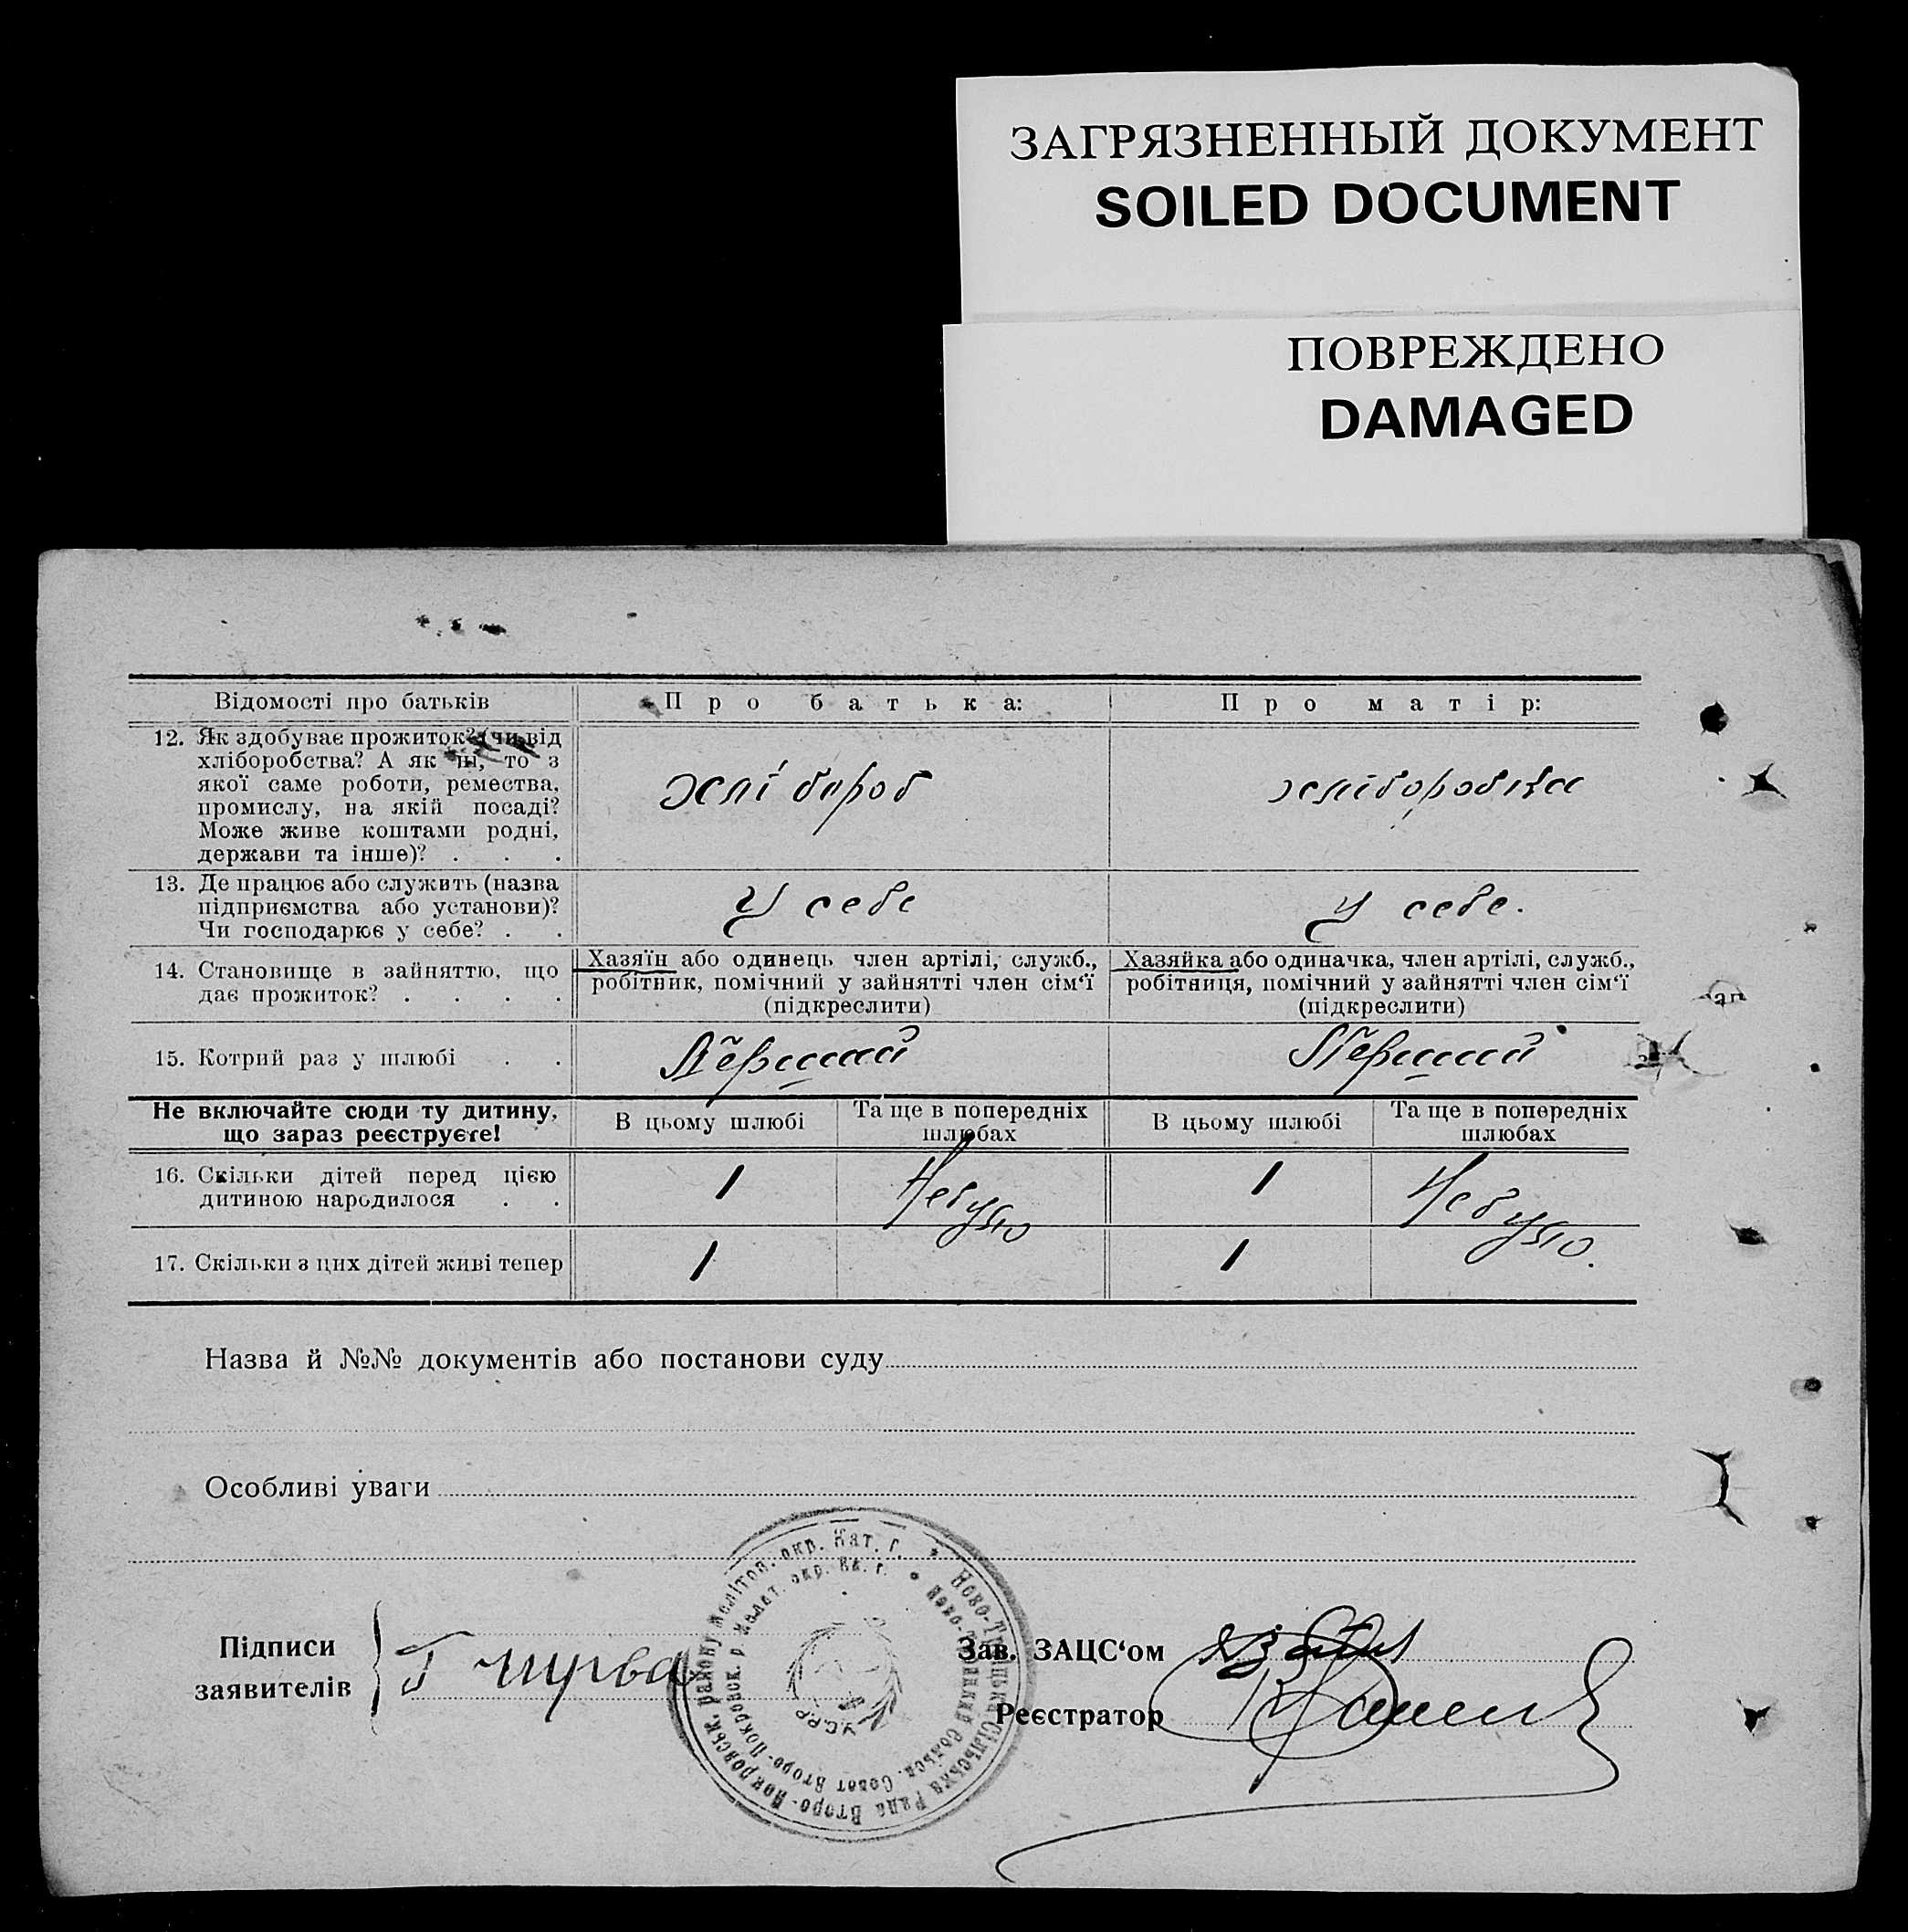 ЗАГРЯЗНЕННЫЙ ДОКУМЕНТ
SOILED DOCUMENT
ПОВРЕЖДЕНО
DAMAGED
Відомості про батьків
Про батька:
Про матір:
12. Як здобуває прожиток? (чи від
хліборобства? А як ні, то з
якої саме роботи, ремества,
промислу, на якій посаді?
Може живе коштами родні,
держави та інше)? . . .
хлібороб
хліборобка
13. Де працює або служить (назва
підприємства або установи)?
Чи господарює у себе? . .
У себе
У себе.
14. Становище в зайняттю, що
дає прожиток? . . . .
Хазяїн або одинець член артілі, служб.,
робітник, помічний у зайнятті член сім‘ї
(підкреслити)
Хазяйка або одиначка, член артілі, служб.,
робітниця, помічний у зайнятті член сім‘ї
(підкреслити)
15. Котрий раз у шлюбі . .
Перший
Перший
Не включайте сюди ту дитину,
що зараз реєструєте!
В цьому шлюбі
Та ще в попередніх
шлюбах
В цьому шлюбі
Та ще в попередніх
шлюбах
16. Скільки дітей перед цією
дитиною народилося . .
1
Небуло
1
Небуло.
17. Скільки з цих дітей живі тепер
1
1
Назва й №№ документів або постанови суду
Особливі уваги
Ново-Троїцька Сільська Рада Второ-Покровськ. району Мелітоп. окр. Кат. г.
Ново-Троицкий Сельск. Совет Второ-Покровск. р. Мелит. окр. Ек. г.
У.С.Р.Р
Підписи
заявителів
Г Чирва
Зав. ЗАЦС‘ом
Реєстратор